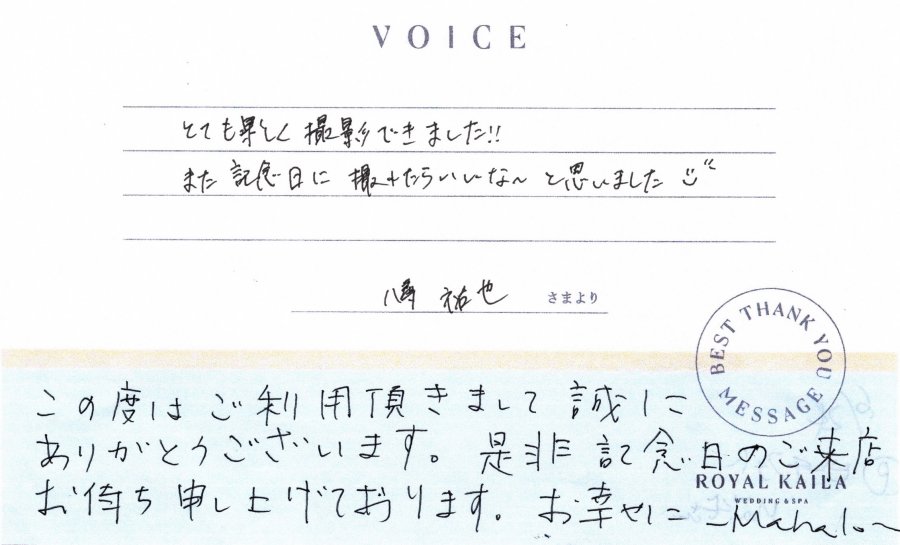 VOICE
とても楽しく撮影できました!!
また記念日に撮れたらいいな〜と思いました
祐也 さまより
BEST THANK YOU MESSAGE
この度はご利用頂きまして誠に
ありがとうございます。是非記念日のご来店
ROYAL KAILA
WEDDING & SPA
お待ち申し上げております。お幸せに −Mahalo〜